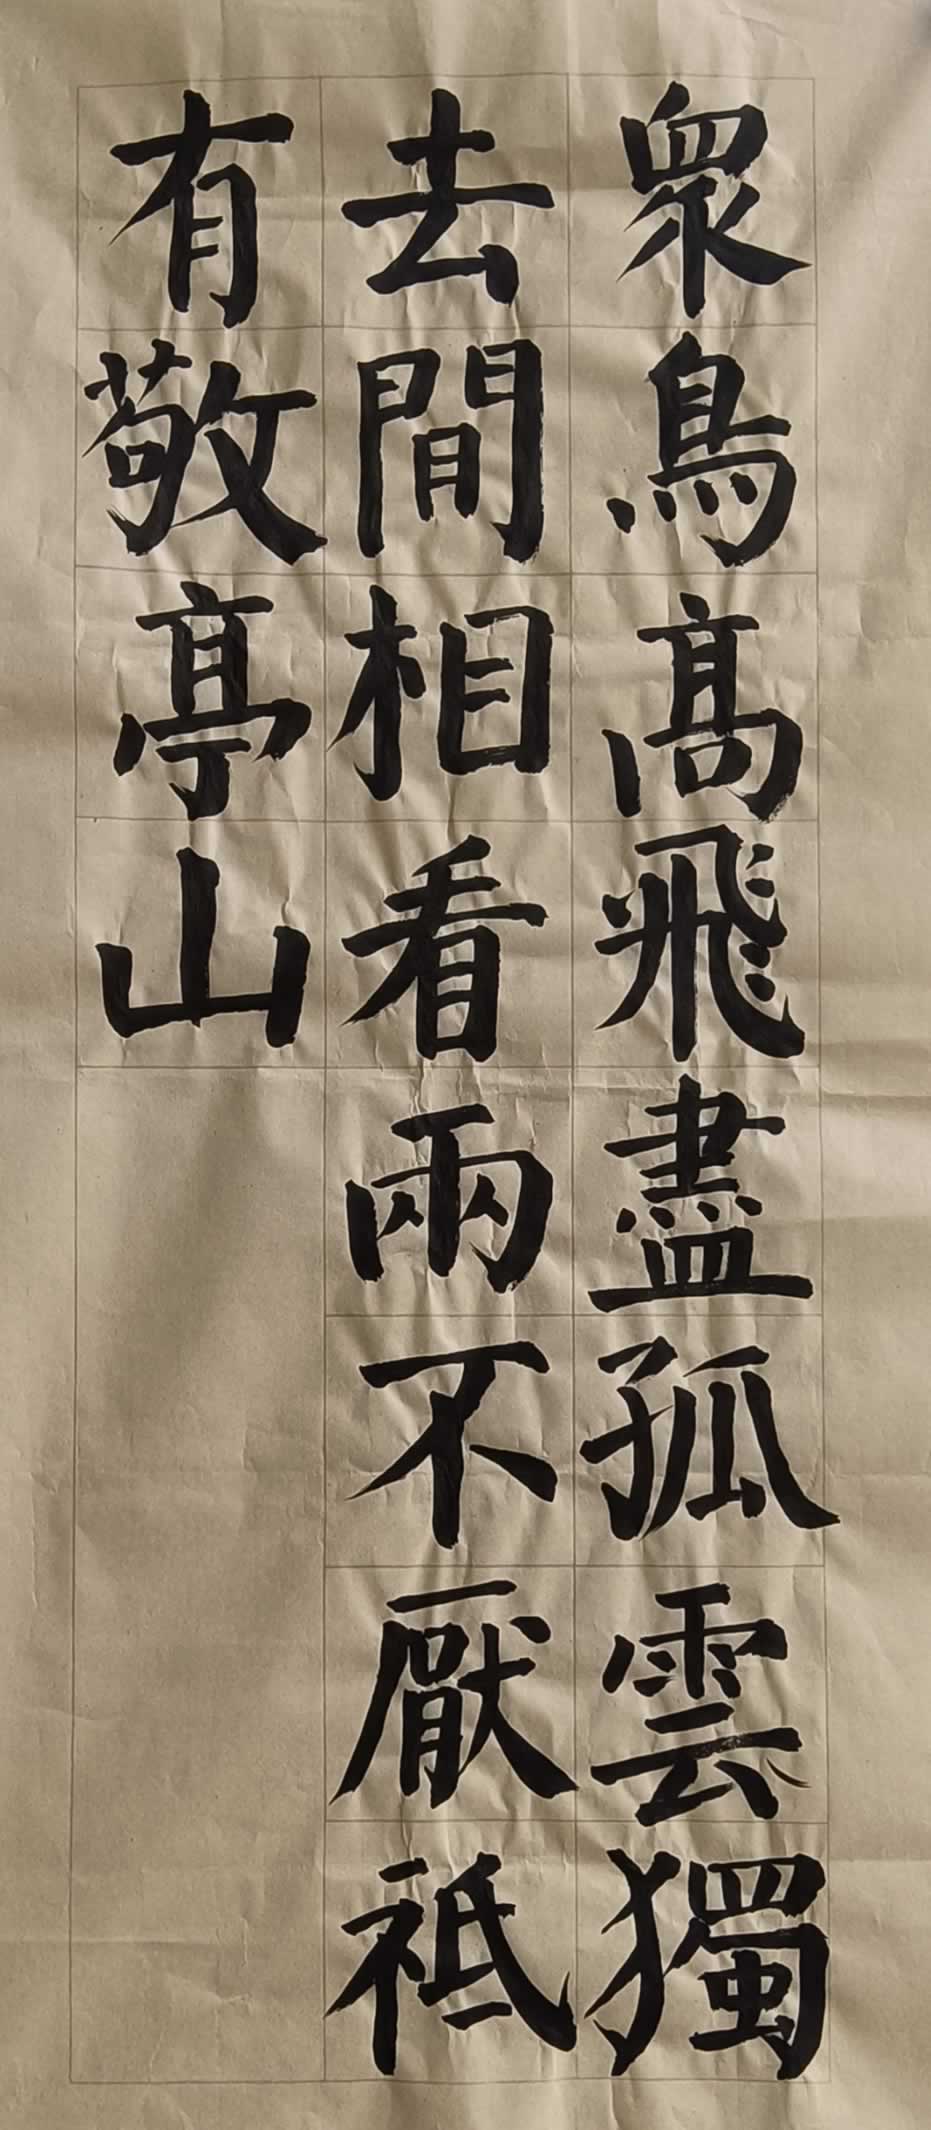 眾鳥高飛盡孤雲獨
去間相看兩不厭祗
有敬亭山